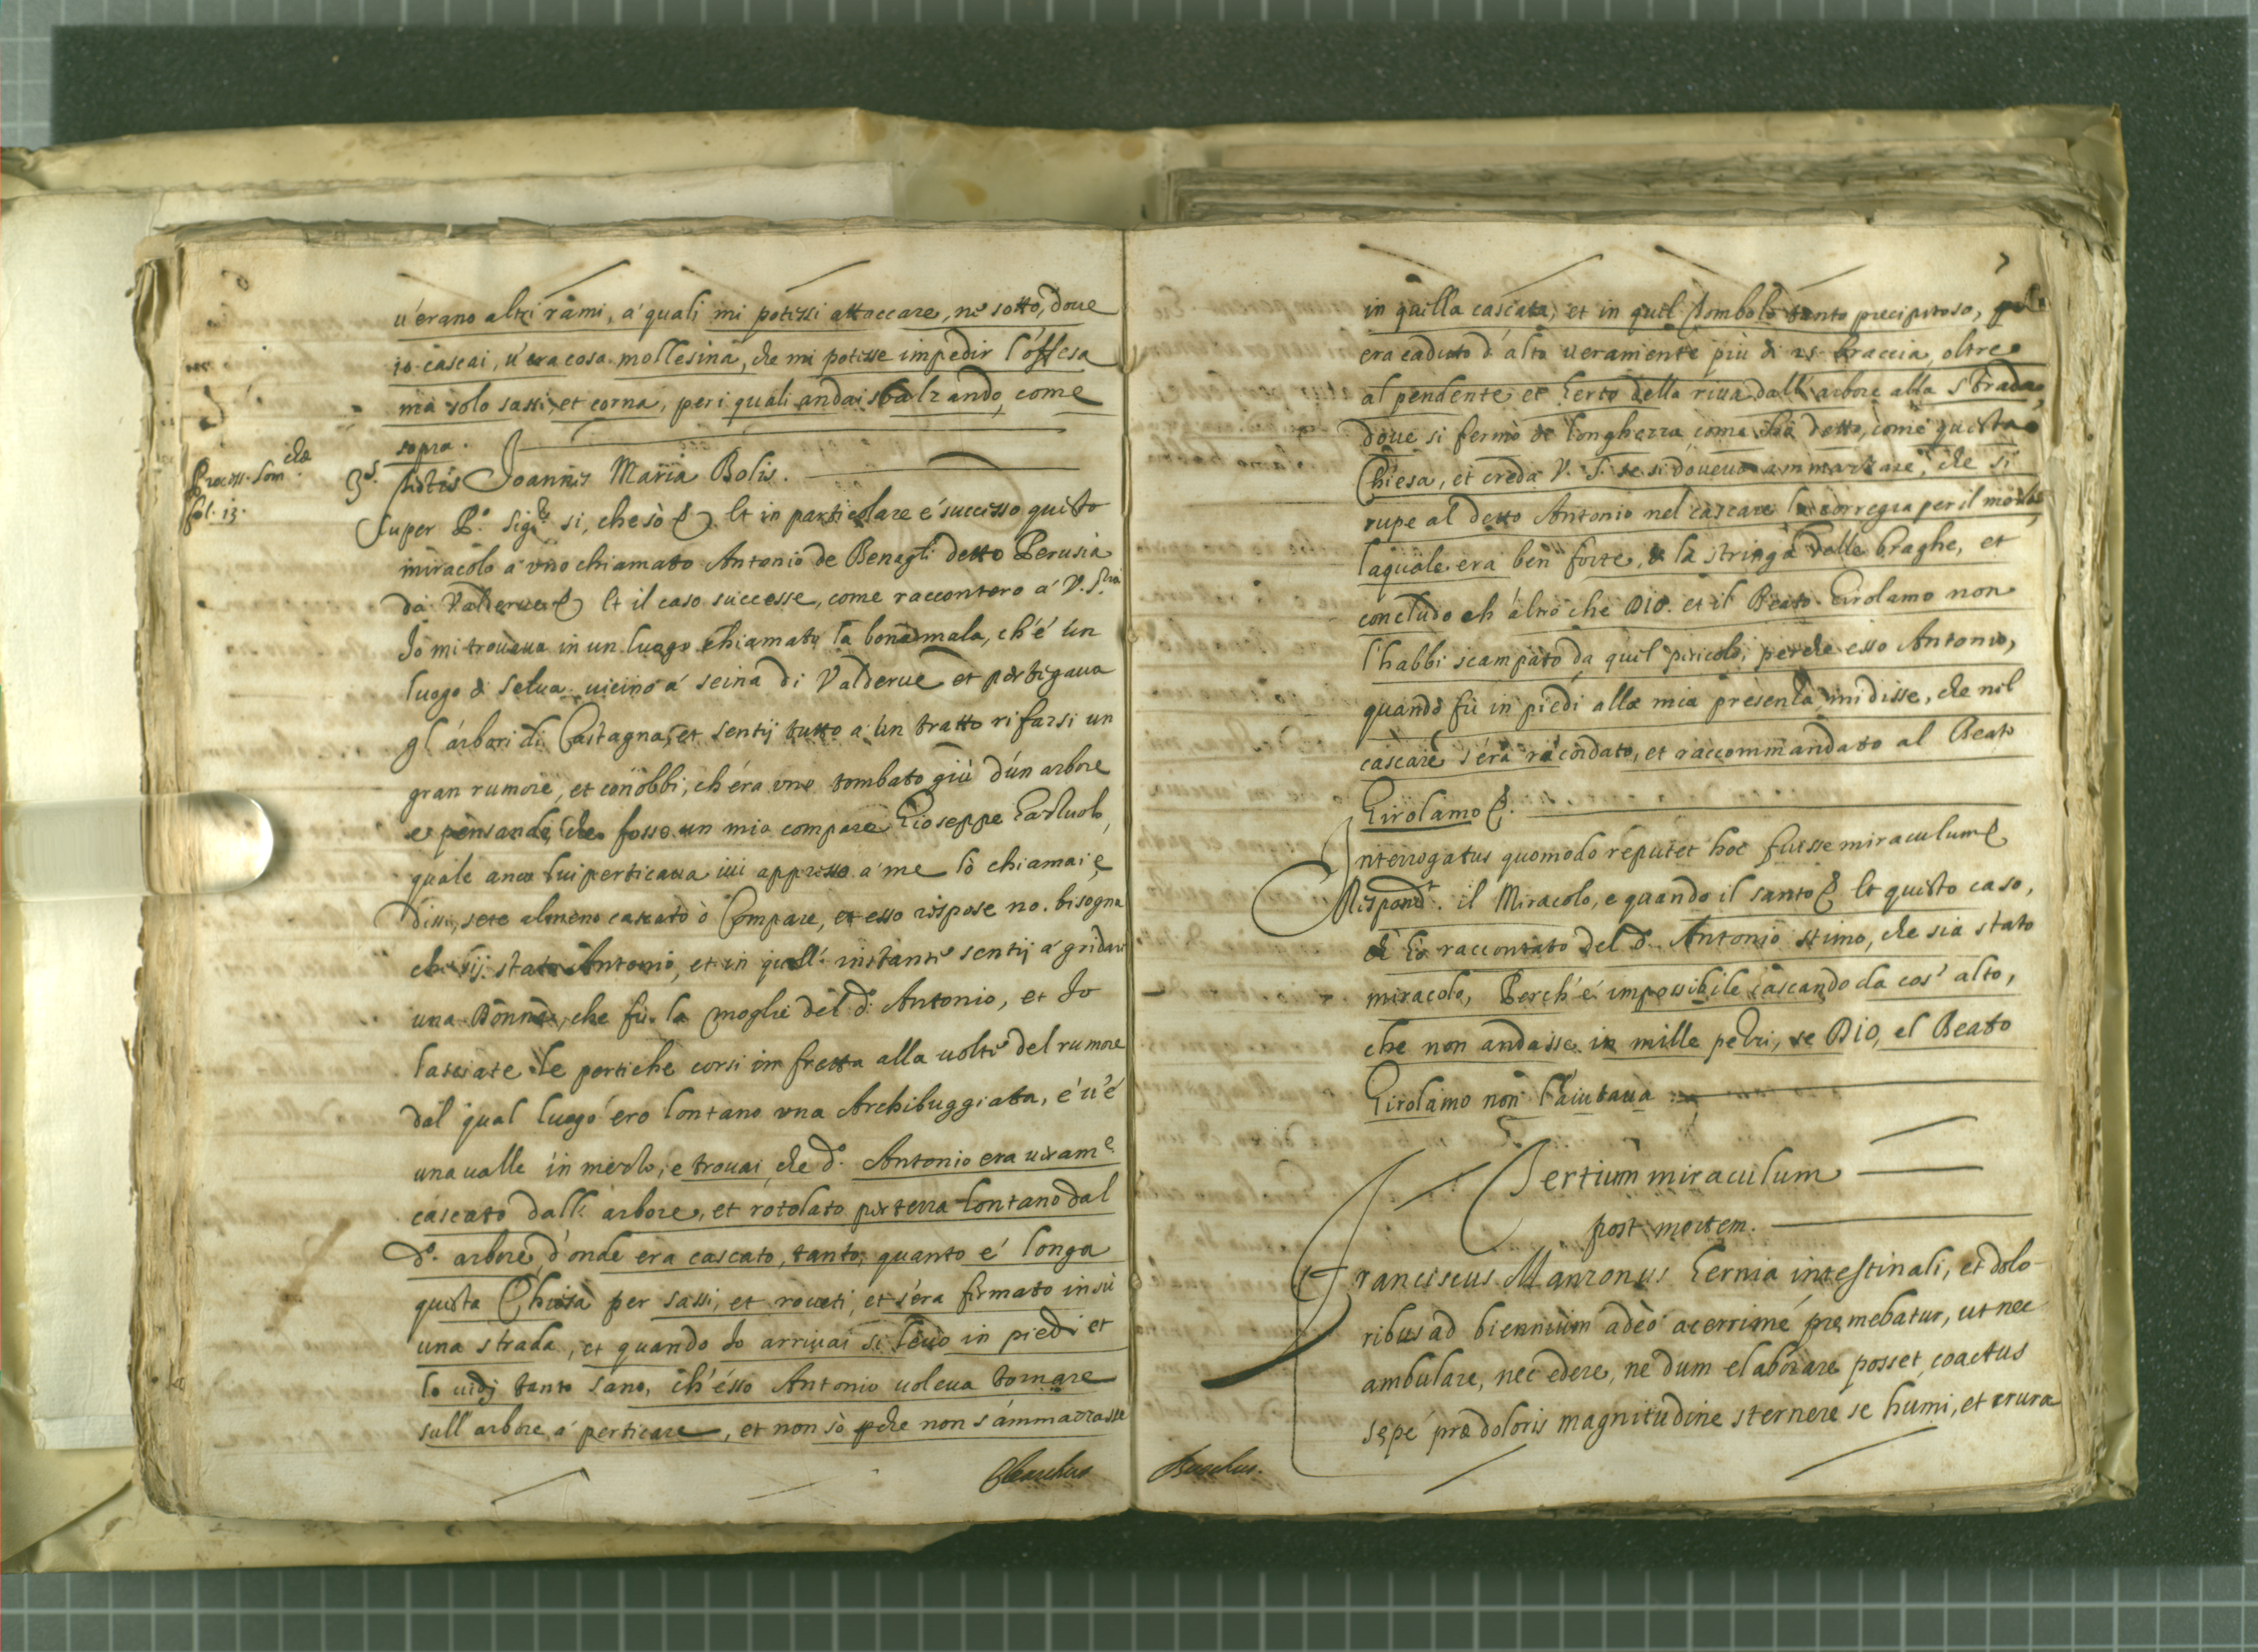 u'erano altri rami, a' quali mi potessi attaccare, ne sotto, doue
io cascai, u'era cosa mollesina, che mi potesse impedir l'offesa
ma solo sassi, et corna, per i quali andai sbalzando, come
sopra.
Process. Som.
fol. 13.
3.s testis Joannes Maria Bolis.
Super P.o Sig.re si, che sò et in particolare é successo questo
miracolo a' uno chiamato Antonio de Benagli detto Perusia
da Valderue et il caso successe, come raccontero a' V. S.ria
Io mi trouaua in un luogo chiamato la bonadmala, ch'é un
luogo di selua uicino a' seina di Valderue et pertigaua
gl' arbori di Castagna, et sentij tutto a' un tratto rifarsi un
gran rumore, et conobbi, ch'era uno tombato giù d'un arbore
e pensando, che fosse un mio compare Gioseppe
quale anco lui perticaua iui appresso a' me lò chiamai, e
dissi, sete almeno cascato ò Compare, et esso rispose no. bisogna
che sij stato Antonio, et in quell' instante sentij a' gridare
una Donna, che fù la moglie del d.o Antonio, et Io
lasciate le pertiche corsi in fretta alla uolta del rumore
dal qual luogo ero lontano una Archibuggiata, é u'é
una ualle in mezzo, e trouai, che d.o Antonio era ueram.e
cascato dall' arbore, et rotolato per terra lontano dal
d.o arbore, d'onde era cascato, tanto, quanto e' longa
questa Chiesa per sassi, et roueti, et s'era firmato in sù
una strada, et quando Io arriuai si leuò in piedi et
lo uidj tanto sano, ch'ésso Antonio uoleua tornare
sull' arbore a' perticare, et non sò perche non s'ammazzasse
in quella cascata, et in quel tombolo tanto precipitoso,
era caduto d'alto ueramente più di 25 braccia, oltre
al pendente et herto della riua dall' arbore alla strada,
doue si fermò de longhezza come hò detto, come questa
Chiesa, et creda V. S. se si doueua ammazzare, che si
rupe al detto Antonio nel cascare la corregia per il mezzo,
la quale era ben forte, & la stringa delle braghe, et
concludo ch' altro che DIO. et il Beato Girolamo non
l'habbi scampato da quel pericolo, perche esso Antonio,
quando fù in piedi alla mia presenza, mi disse, che nel
cascare s'era racordato, et raccommandato al Beato
Girolamo
Interrogatus quomodo reputet hoc fuisse miraculum
Respond.t il Miracolo, e quando il santo et questo caso,
ch' hò raccontato del d.o Antonio stimo, che sia stato
miracolo, Perch'é impossibile cascando da cos' alto,
che non andasse in mille pezzi, se DIO, el Beato
Girolamo non l'aiutaua
Tertium miraculum
post mortem.
Franciscus Manzonus hernia intestinali, et dolo-
ribus ad biennium adeò acerrimé premebatur, ut nec
ambulare, nec edere, ne dum elaborare posset, coactus
sępé præ doloris magnitudine sternere se humi, et crura